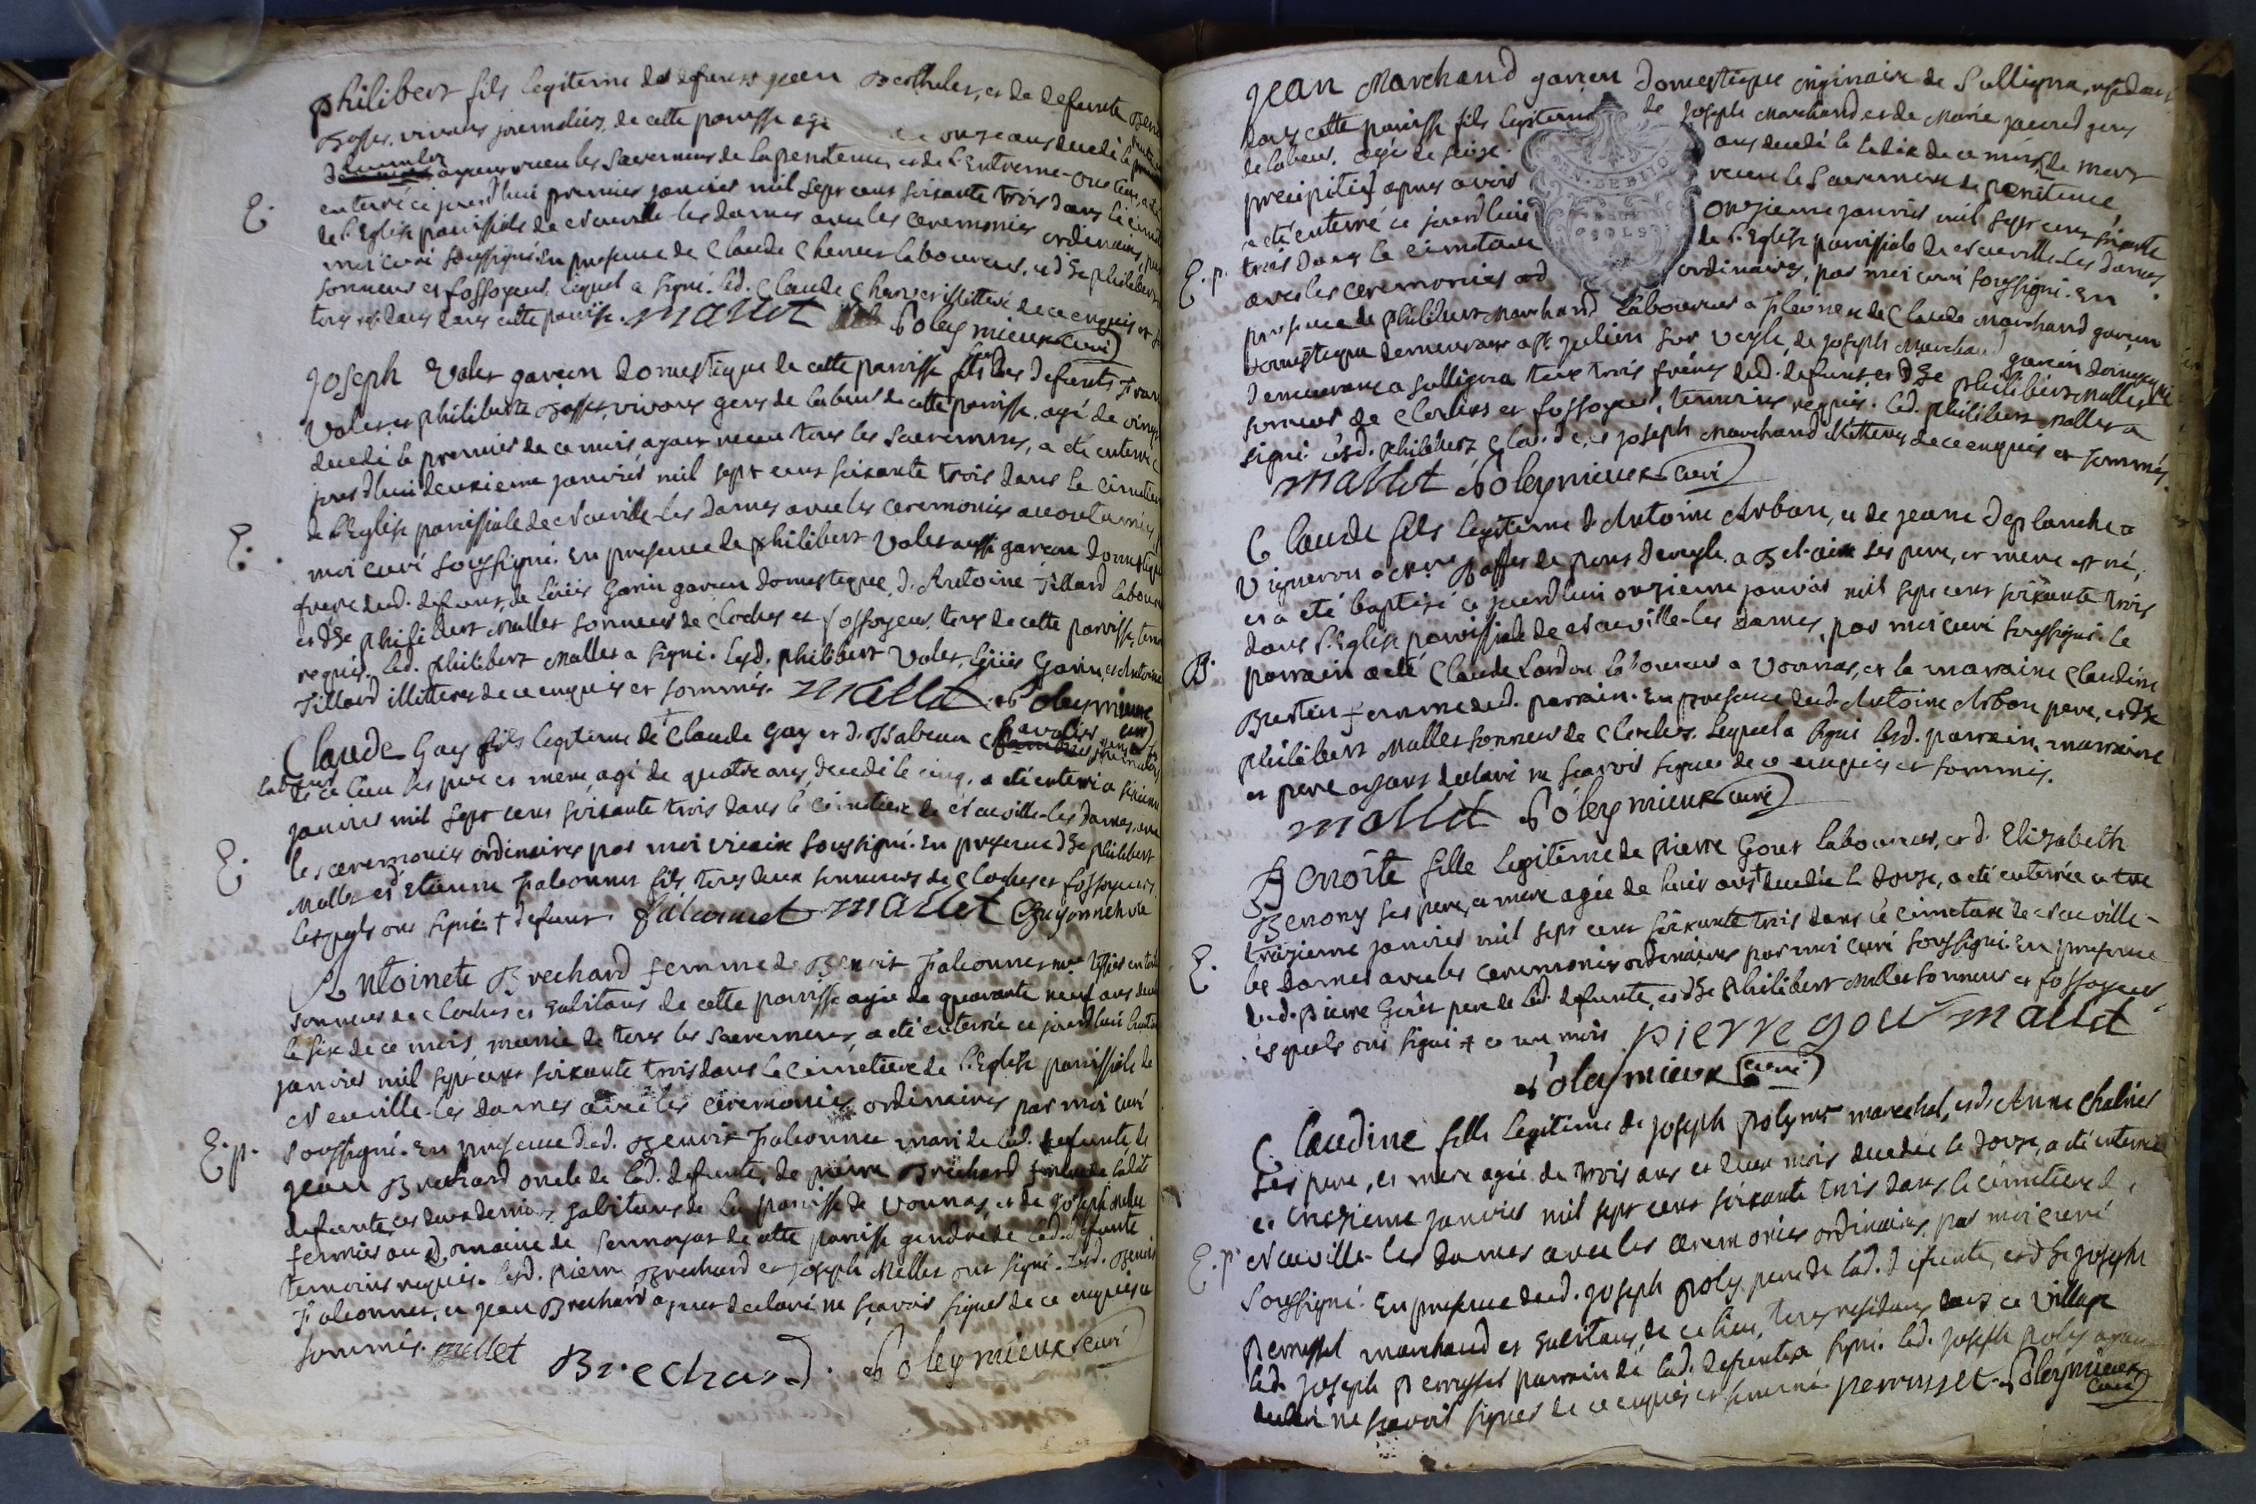 Philibert fils legitime de defunt Jean Berthelier, et de defunte
Bosse, vivans journaliers, de cette paroisse agé de onze ans decedé le
ayant receu les Sacremens de la penitence, et de l'Extreme-onction, a été
E.
enterré ce jourd'hui premier janvier mil sept cent soixante trois dans le
de l'Eglise paroissiale de Neuville-les-dames avec les ceremonies ordinaires, par
moi curé soussigné. En presence de Claude laboureur, et de Sr Philibert
sonneur et fossoyeur, lequel a signé. led. Claude illitteré de ce enquis et
tous residans dans cette paroisse. Mallet Poleymieux curé
Joseph Volet garçon domestique de cette paroisse fils des defunts
Volet, et philiberte Bosse, vivans gens de labeur de cette paroisse, agé de vingt
decedé le premier de ce mois, ayant receu tous les Sacremens, a été enterré ce
jourd'hui deuxieme janvier mil sept cent soixante trois dans le cimetiere
de l'Eglise paroissiale de Neuville-les-Dames avec les ceremonies accoutumées
E.
moi curé soussigné. En presence de philibert Volet aussi garçon domestique
frere dud. defunt, de Louis Gonin garçon domestique, d'Antoine Tillard laboureur
et de Sr philibert Mallet sonneur de cloches et fossoyeur, tous de cette paroisse,
requis. Led. philibert Mallet a signé. Lesd. philibert Volet, Louis Gonin, et Antoine
Tillard illitterés de ce enquis et sommés. Mallet Poleymieux
curé
Claude Gay fils legitime de + Claude Gay et d'Isabeau
labeur
de ce lieu ses pere et mere, agé de quatre ans, decedé le cinq, a été enterré ce sixieme
janvier mil sept cent soixante trois dans le cimetiere de Neuville-les-Dames, avec
E.
les ceremonies ordinaires par moi vicaire soussigné. En presence de Sr philibert
Mallet et d'Etienne Falconnet fils, tous deux sonneurs de cloches et fossoyeurs,
lesquels ont signé. + defunt. falconnet Mallet Guyonnet
Antoinete Brechard femme de Benoit Falconnet
sonneur de cloches et habitans de cette paroisse agée de quarante neuf ans
le six de ce mois, munie de tous les Sacremens, a été enterrée ce jourd'hui huitieme
janvier mil sept cent soixante trois dans le cimetiere de l'Eglise paroissiale de
Neuville-les Dames avec les ceremonies ordinaires par moi curé
E.p.
soussigné. En presence dud. Benoit Falconnet mari de lad. defunte, de
Jean Brechard oncle de lad. defunte, de pierre Brechard de ladite
defunte, ces deux derniers habitans de la paroisse de Vonnas, et de Joseph Mellet
fermier au Domaine de de cette paroisse gendre de lad. defunte
temoins requis. Lesd. pierre Brechard et Joseph Mellet ont signé. Lesd. Benoit
Falconnet, et Jean Brechard ayant declaré ne sçavoir signer de ce enquis et
sommés. mellet Brechard. Poleymieux curé
Jean Marchand garçon Domestique originaire de Sulligna, residant
dans cette paroisse fils legitime de Joseph Marchand, et de Marie gens
de labeur, agé de seize ans decedé le le dix de ce mois, de mort
precipitée apres avoir receu le Sacrement de penitence
GEN. DE BIJO
SOLS
a été enterré ce jourd'huis onzieme janvier mil sept cent soixante
E.p.
trois dans le cimetiere de l'Eglise paroissiale de Neuville-les Dames
avec les ceremonies ordinaires, par moi curé soussigné. En
presence de philibert Marchand laboureur a de Claude Marchand garçon
Domestique demeurant a St julien sur veyle, de Joseph Marchand garçon domestique
demeurant a Sulligna tous trois freres dud. defunt, et de Sr philibert Mallet
sonneur de cloches et fossoyeur, temoins requis. led. philibert Mallet a
signé lesd. philibert, Claude, et joseph Marchand illitterés de ce enquis et sommés.
Mallet Poleymieux curé
Claude fils legitime d'Antoine Arban, et de jeane Deplanche
Vigneron de pons deveyle, a ses pere, et mere est né,
et a été baptisé ce jourd'hui onzieme janvier mil sept cent soixante trois
dans l'Eglise paroissiale de Neuville-les Dames, par moi curé soussigné. le
B.
parrain a été Claude Lardon laboureur a Vonnas, et la marraine Claudine
femme dud. parrain. En presence dud. Antoine Arban pere, et de Sr
philibert Mallet sonneur de cloches. Lequel a signé lesd. parrain, marraine
et pere ayans declaré ne sçavoir signer de ce enquis et sommés.
Mallet Poleymieux curé
Benoite fille legitime de pierre Gour laboureur, et d'Elizabeth
Benony ses pere, et mere agée de huit ans + decedée le douze, a été enterrée ce
treizieme janvier mil sept cent soixante trois dans le cimetiere de Neuville-
E.
les Dames avec les ceremonies ordinaires par moi curé soussigné. En presence
dud. pierre Gour pere de lad. defunte, et de Sr Philibert Mallet sonneur et fossoyeur
lesquels ont signé + et un mois pierre gour Mallet
Poleymieux curé
Claudine fille legitime de joseph poly marechal, et d'Anne
ses pere, et mere agée de trois ans et deux mois decedée le douze, a été enterrée
ce treizieme janvier mil sept cent soixante trois dans le cimetiere de
E.p.
Neuville-les Dames avec les ceremonies ordinaires, par moi curé
soussigné. En presence dud. joseph poly pere de lad. defunte, et de Sr joseph
Perrusset marchand et habitans de ce lieu, tous residans dans ce village
led. joseph Perrusset parrain de lad. defunte a signé. led. joseph poly ayant
declaré ne sçavoir signer de ce enquis et sommé. perrusset Poleymieux
curé